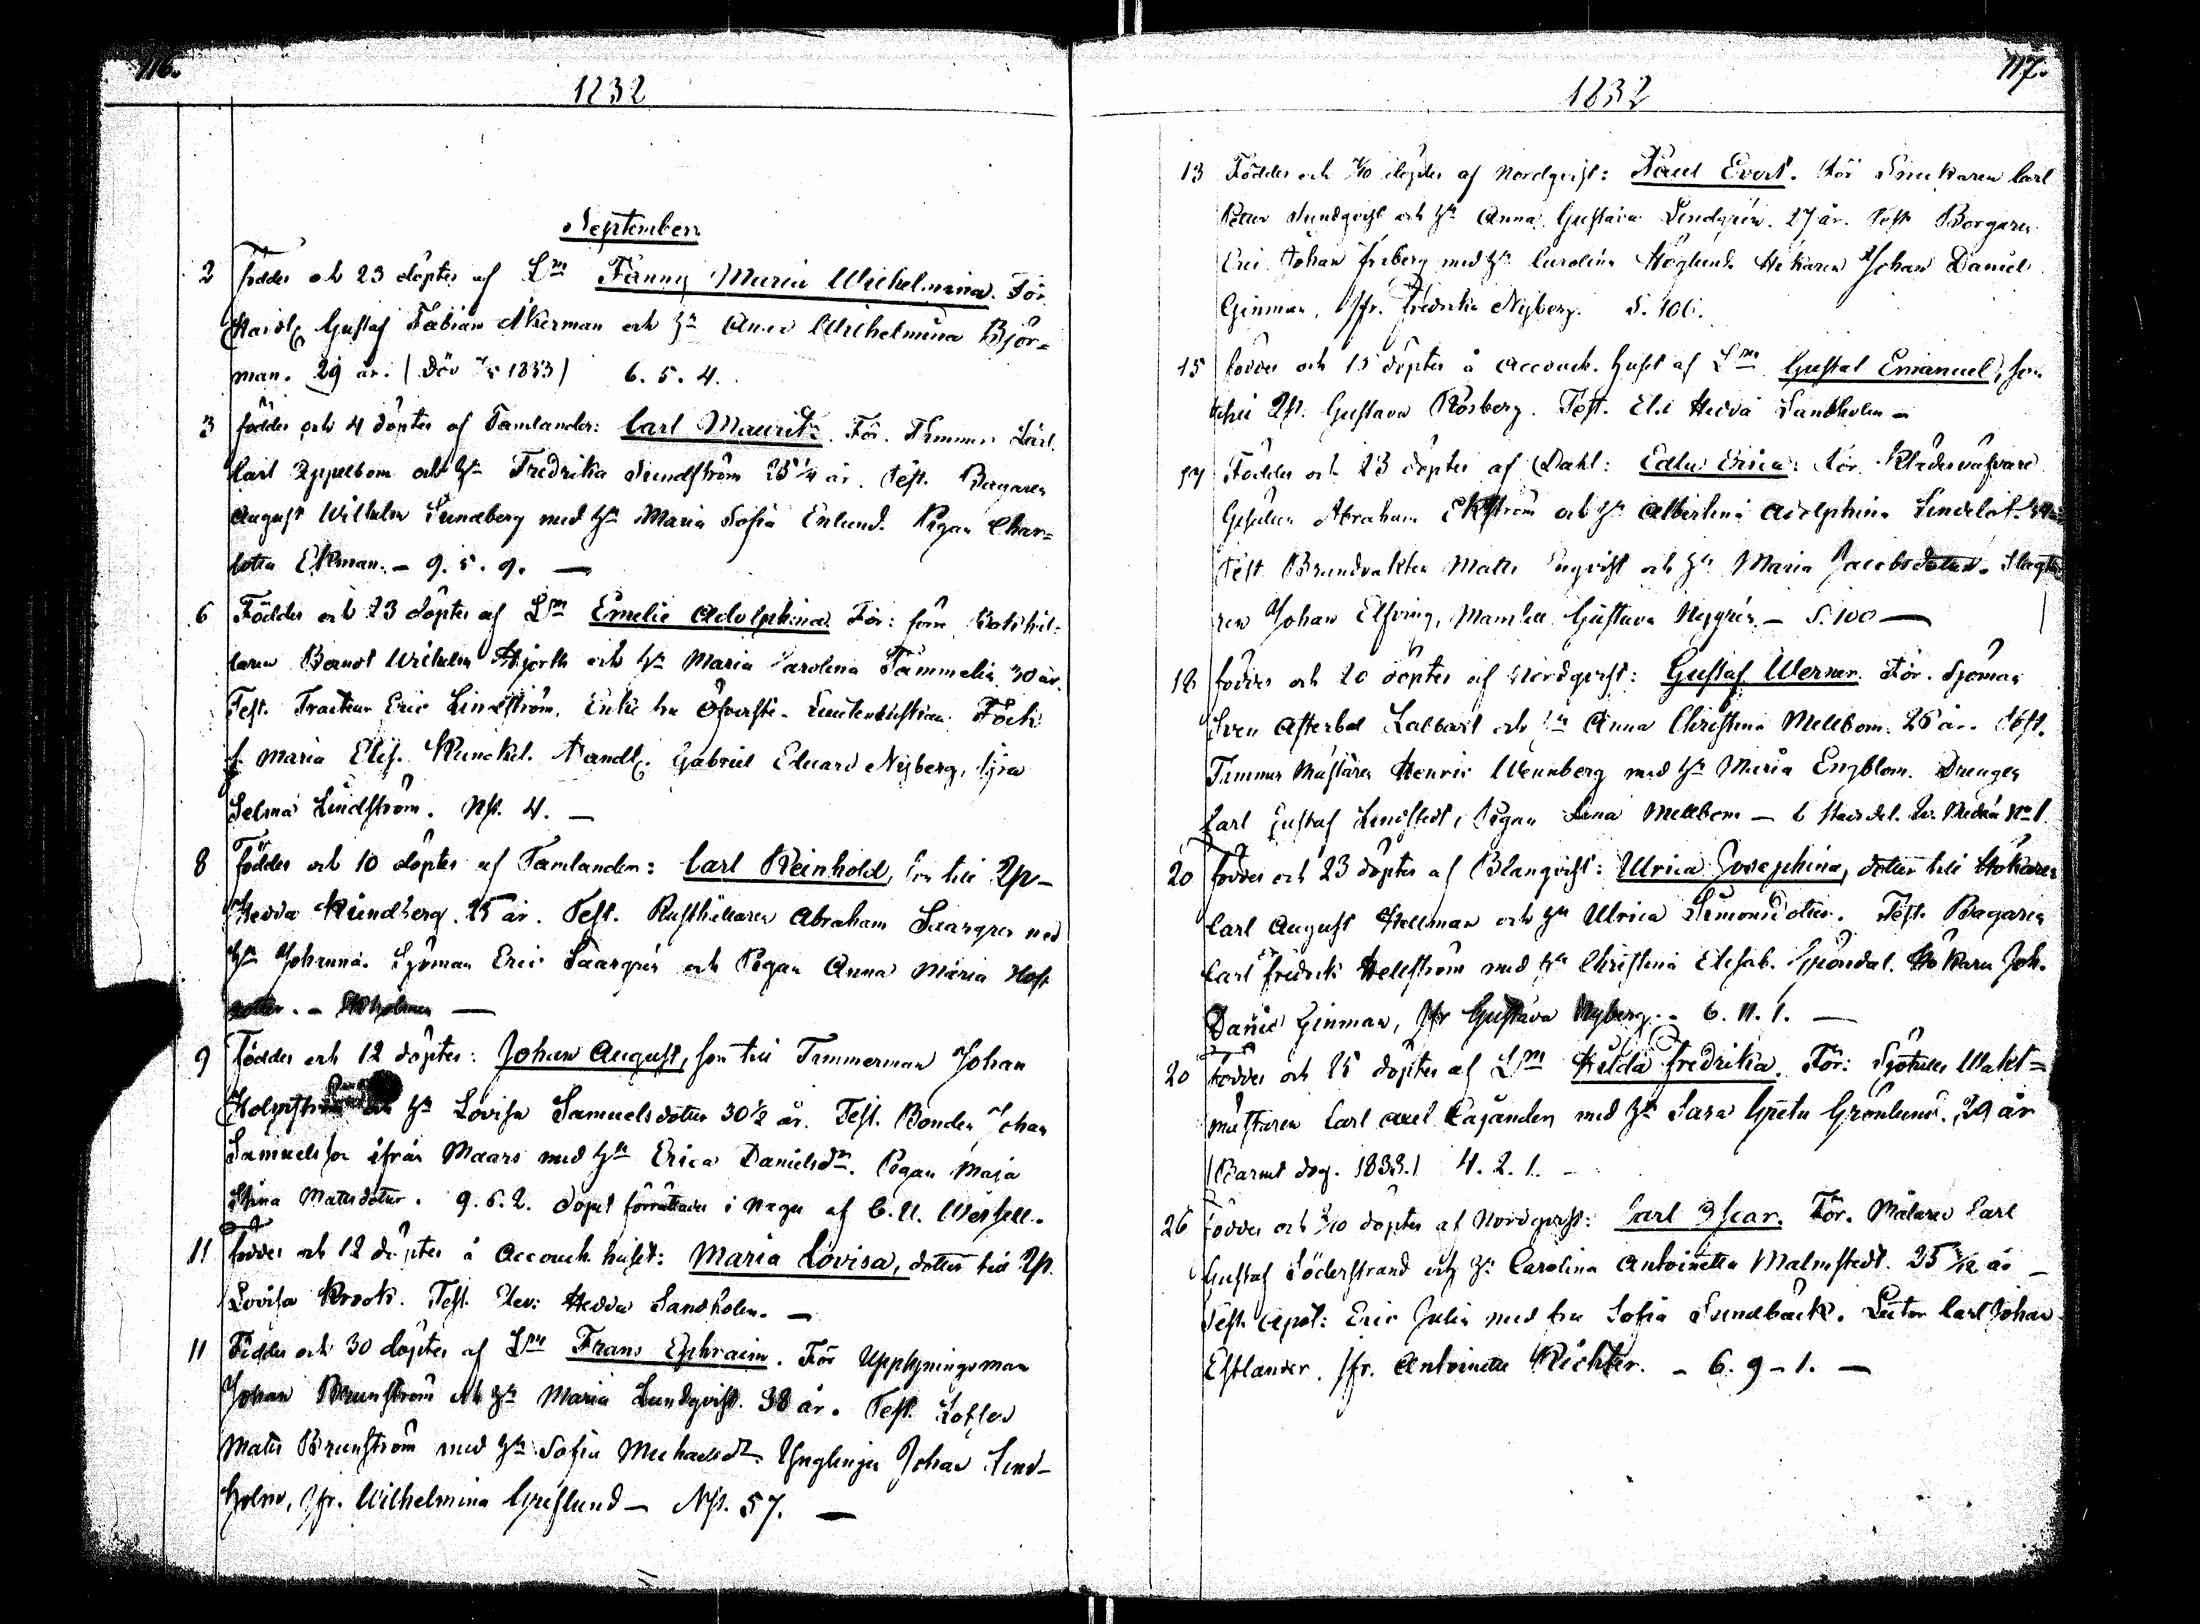 116.
1832
September
2 föddes och 23 döptes af Lm Fanny Maria Wilhelmina. För.
Handl. Gustaf Fabian Åkerman och h. Anna Wilhelmina Björ=
man. 29 år. | Död 1833 | 6. 5. 4.
3 föddes och 4 döptes af Tamlander: Carl Mauritz. För. Timmer Lärl.
Carl Appelbom och h. Fredrika Sundström 25 1/4 år. Test. Bagaren
August Wilhelm Sundberg med h. Maria Sofia Enlund. Pigan Char=
lotta Ekman. - 9. 5. 9. —
6 Föddes och 23 döptes af Lm Emelie Adolphina För: förre
Berndt Wilhelm Hjorth och h. Maria Carolina Tammelin 30 år.
Test. Tracteur Eric Lindström, Enke fru Öfverste-Lieutenantskan
f. Maria Elis. Handl. Gabriel Eduard Nyberg,
Selma Lindström. Nst. 4. —
8 föddes och 10 döptes af Tamlander: Carl Reinhold, son till Qp-
Hedda Sundberg. 25 år. Test. Rusthållaren Abraham med
h. Johanna. Sjöman Eric och Pigan Anna Maria
—
9 Föddes och 12 döptes: Johan August, son till Timmerman Johan
Holmström och h. Lovisa Samuelsdotter 30 1/2 år. Test. Bonden Johan
Samuelsson ifrån Maars med h. Erica Danielsdr. Pigan Maja
Stina Mattsdotter. 9. 6. 2. dopet förrättades i Nagu af C. U.
11 föddes och 12 döptes å Accouch. huset: Maria Lovisa, dotter till Qp.
Lovisa Krook. Test. Elev: Hedda Sandholm. —
11 Föddes och 30 döptes af Lm Frans Ephraim. För Uppsyningsman
Johan Brunström och h. Maria Lundqvist. 38 år. Test.
Matts Brunström med h. Sofia Michaelsdr. Ynglingen Johan Lind-
holm, Jfr. Wilhelmina Grislund — Nst. 57. —
117.
1832
13 Föddes och 1/10 döptes af Nordqvist: Paul Evert. För Snickaren Carl
Peter Sundqvist och h. Anna Gustava Lindgrén. 27 år. Test. Borgaren
Eric Johan Friberg med h. Carolina Höglund. Hökaren Johan Daniel
Ginman, Jfr. Fredrika Nyberg. S. 106.
15 föddes och 15 döptes å Accouch. huset af Lm Gustaf Emanuel, son
till Qp. Gustava Rosberg. Test. Elev Hedda Sandholm —
17 Föddes och 23 döptes af Dahl: Edla Erica: För. Klädesväfvare
Gesällen Abraham Ekström och h. Albertina Adolphina Lindelöf.
Test. Brandvakten Matts Engvist och h. Maria Jacobsdotter. Slagta-
ren Johan Elfving, Mamsell Gustava Nygrén — S. 100 —
18 föddes och 20 döptes af Nordqvist: Gustaf Werner. För. Sjöman
Sven och h. Anna Christina Mellbom. 26 år. Test.
Timmer Mästaren Henric Wennberg med h. Maria Engblom. Drengen
Carl Gustaf Lindstedt, Pigan Lena Mellbom —
20 föddes och 23 döptes af Blanqvist: Ulrica Josephina, dotter till Hökaren
Carl August Hellman och h. Ulrica Simonsdotter. Test. Bagaren
Carl Fredrik Hellström med h. Christina Elisab. Gröndal. Hökaren Joh.
Daniel Ginman, Jfr Gustava Nyberg. - 6. 11. 1. —
20 föddes och 25 döptes af Lm Hilda Fredrika. För: Sjötulls Vakt=
mästaren Carl Axel Cajander med h. Sara Greta Grönlund. 29 år
| Barnet dog. 1833. | 4. 2. 1. —
26 föddes och 2/10 döptes af Nordqvist: Carl Oscar. För. Målaren Carl
Gustaf Söderstrand och h. Carolina Antoinetta Malmstedt. 25 år —
Test. Apot: Eric Julin med fru Sofia Sundbäck. Carl Johan
Estlander. Jfr. Antoinette Richter. - 6. 9 - 1. —